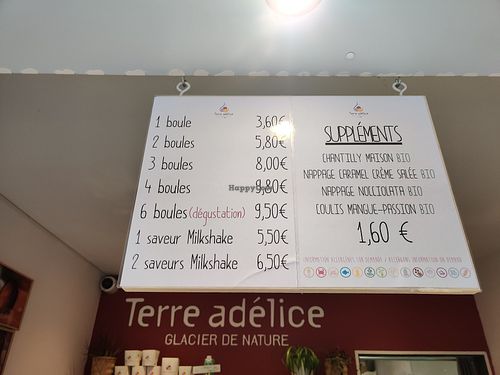 Terre adélice
1 boule 3,60€
2 boules 5,80€
3 boules 8,00€
4 boules 9,80€
6 boules (dégustation) 9,50€
1 saveur Milkshake 5,50€
2 saveurs Milkshake 6,50€
Terre adélice
SUPPLÉMENTS
CHANTILLY MAISON BIO
NAPPAGE CARAMEL CRÈME SALÉE BIO
NAPPAGE NOCCIOLATA BIO
COULIS MANGUE-PASSION BIO
1,60 €
INFORMATION ALLERGÈNES SUR DEMANDE / ALLERGENS INFORMATION ON DEMAND
HappyCow
Terre adélice
GLACIER DE NATURE